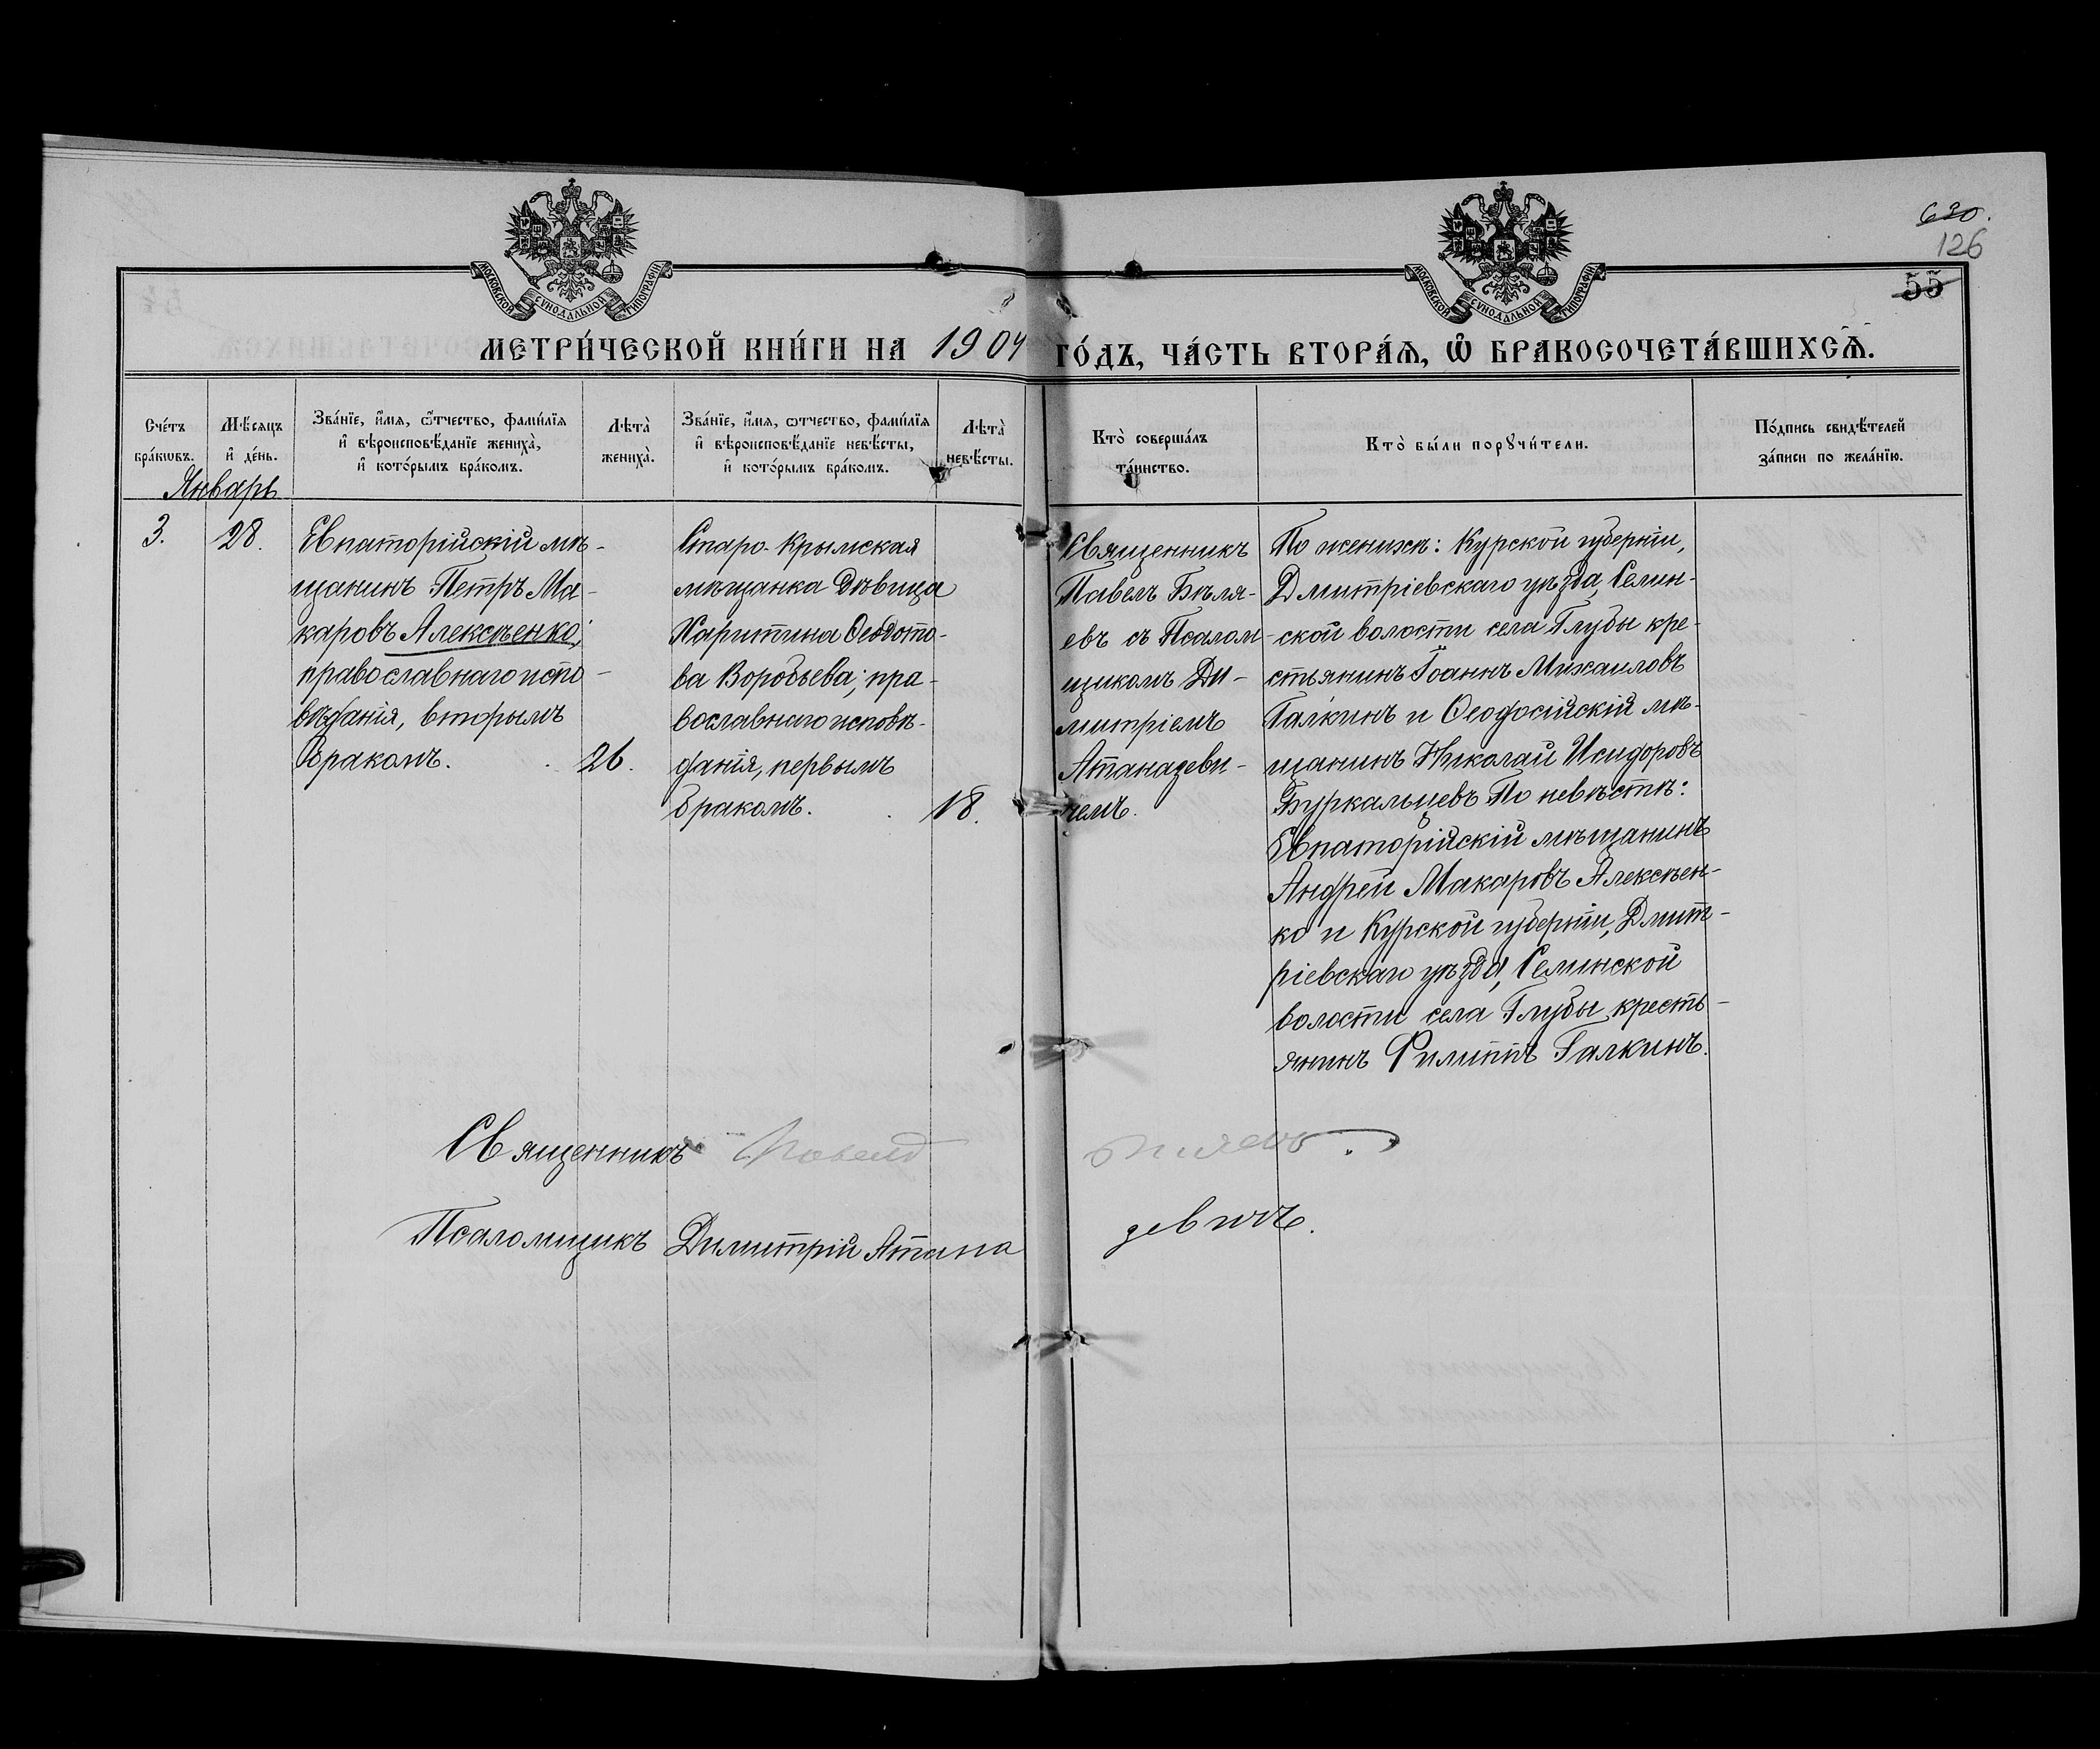 МОСКОВСКОЙ СѴНОДАЛЬНОЙ ТИПОГРАФІИ
МОСКОВСКОЙ СѴНОДАЛЬНОЙ ТИПОГРАФІИ
630.
126
55
МЕТРИ́ЧЕСКОЙ КНИ́ГИ НА 1904 ГО́ДЪ, ЧА́СТЬ ВТОРА́Ѧ, Ѽ БРАКОСОЧЕТА́ВШИХСѦ.
Сче́тъ
бра́кѡвъ.
Мѣ́сяцъ
и҆ де́нь.
Зва́нїе, и҆́мя, ѻ҆́тчество, фамі́лїя
и҆ вѣроисповѣ́данїе жениха̀,
и҆ кото́рымъ бра́комъ.
Лѣта̀
жениха̀.
Зва́нїе, и҆́мя, ѻтчество, фамі́лїя
и҆ вѣроисповѣ́данїе невѣ́сты,
и҆ кото́рымъ бра́комъ.
Лѣта̀
невѣ́сты.
Кто̀ соверша́лъ
та́инство.
Кто̀ бы́ли порꙋчи́тели.
По́дпись свидѣ́телей
за́писи по жела́нїю.
Январь
3.
28.
Евпаторійскій мѣ-
щанинъ Петръ Ма-
каровъ Алексѣенко;
православнаго испо-
вѣданія, вторымъ
бракомъ.
26.
Старо-Крымская
мѣщанка Дѣвица
Харитина Ѳеодото-
ва Воробьева; пра-
вославнаго исповѣ-
данія, первымъ
бракомъ.
18.
Священникъ
Павелъ Бѣля-
евъ съ Псалом-
щикомъ Ди-
митріемъ
Атаназеви-
чемъ.
По женихѣ: Курской губерніи,
Дмитріевскаго уѣзда, Селин-
ской волости села Глубы кре-
стьянинъ Іоаннъ Михаиловъ
Галкинъ и Ѳеодосійскій мѣ-
щанинъ Николай Исидоровъ
Буркальцевъ По невѣстѣ:
Евпаторійскій мѣщанинъ
Андрей Макаровъ Алексѣен-
ко и Курской губерніи, Дмит-
ріевскаго уѣзда, Селинской
волости села Глубы кресть-
янинъ Филиппъ Галкинъ.
Священникъ Павелъ Бѣляевъ.
Псаломщикъ Димитрій Атаназевичъ.